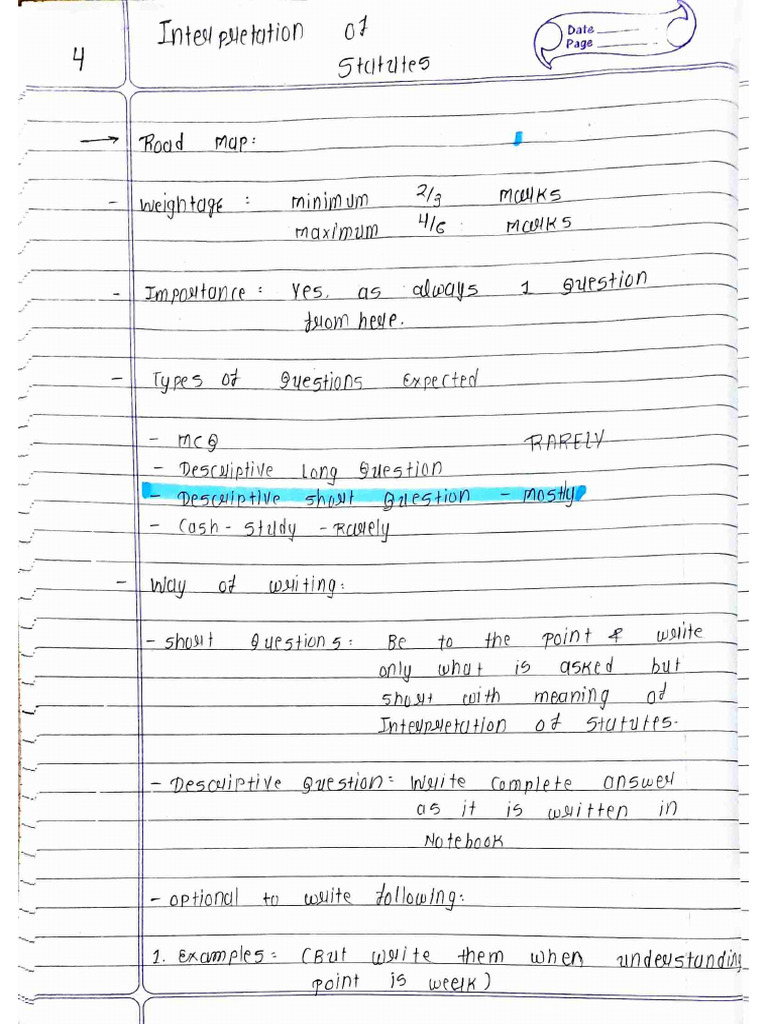 4
Interpretation of
Statutes
Date
Page
→ Road Map:
- Weightage : minimum 2/3 marks
maximum 4/6 marks
- Importance: Yes, as always 1 Question
from here.
- Types of Questions Expected
- MCQ RARELY
- Descriptive Long Question
- Descriptive Short Question - Mostly
- Cash-Study - Rarely
- Way of writing:
- Short Questions: Be to the point & write
only what is asked but
short with meaning of
Interpretation of Statutes.
- Descriptive Question: Write Complete answer
as it is written in
Notebook
- Optional to write following:
1. Examples: (But write them when understanding
point is week)